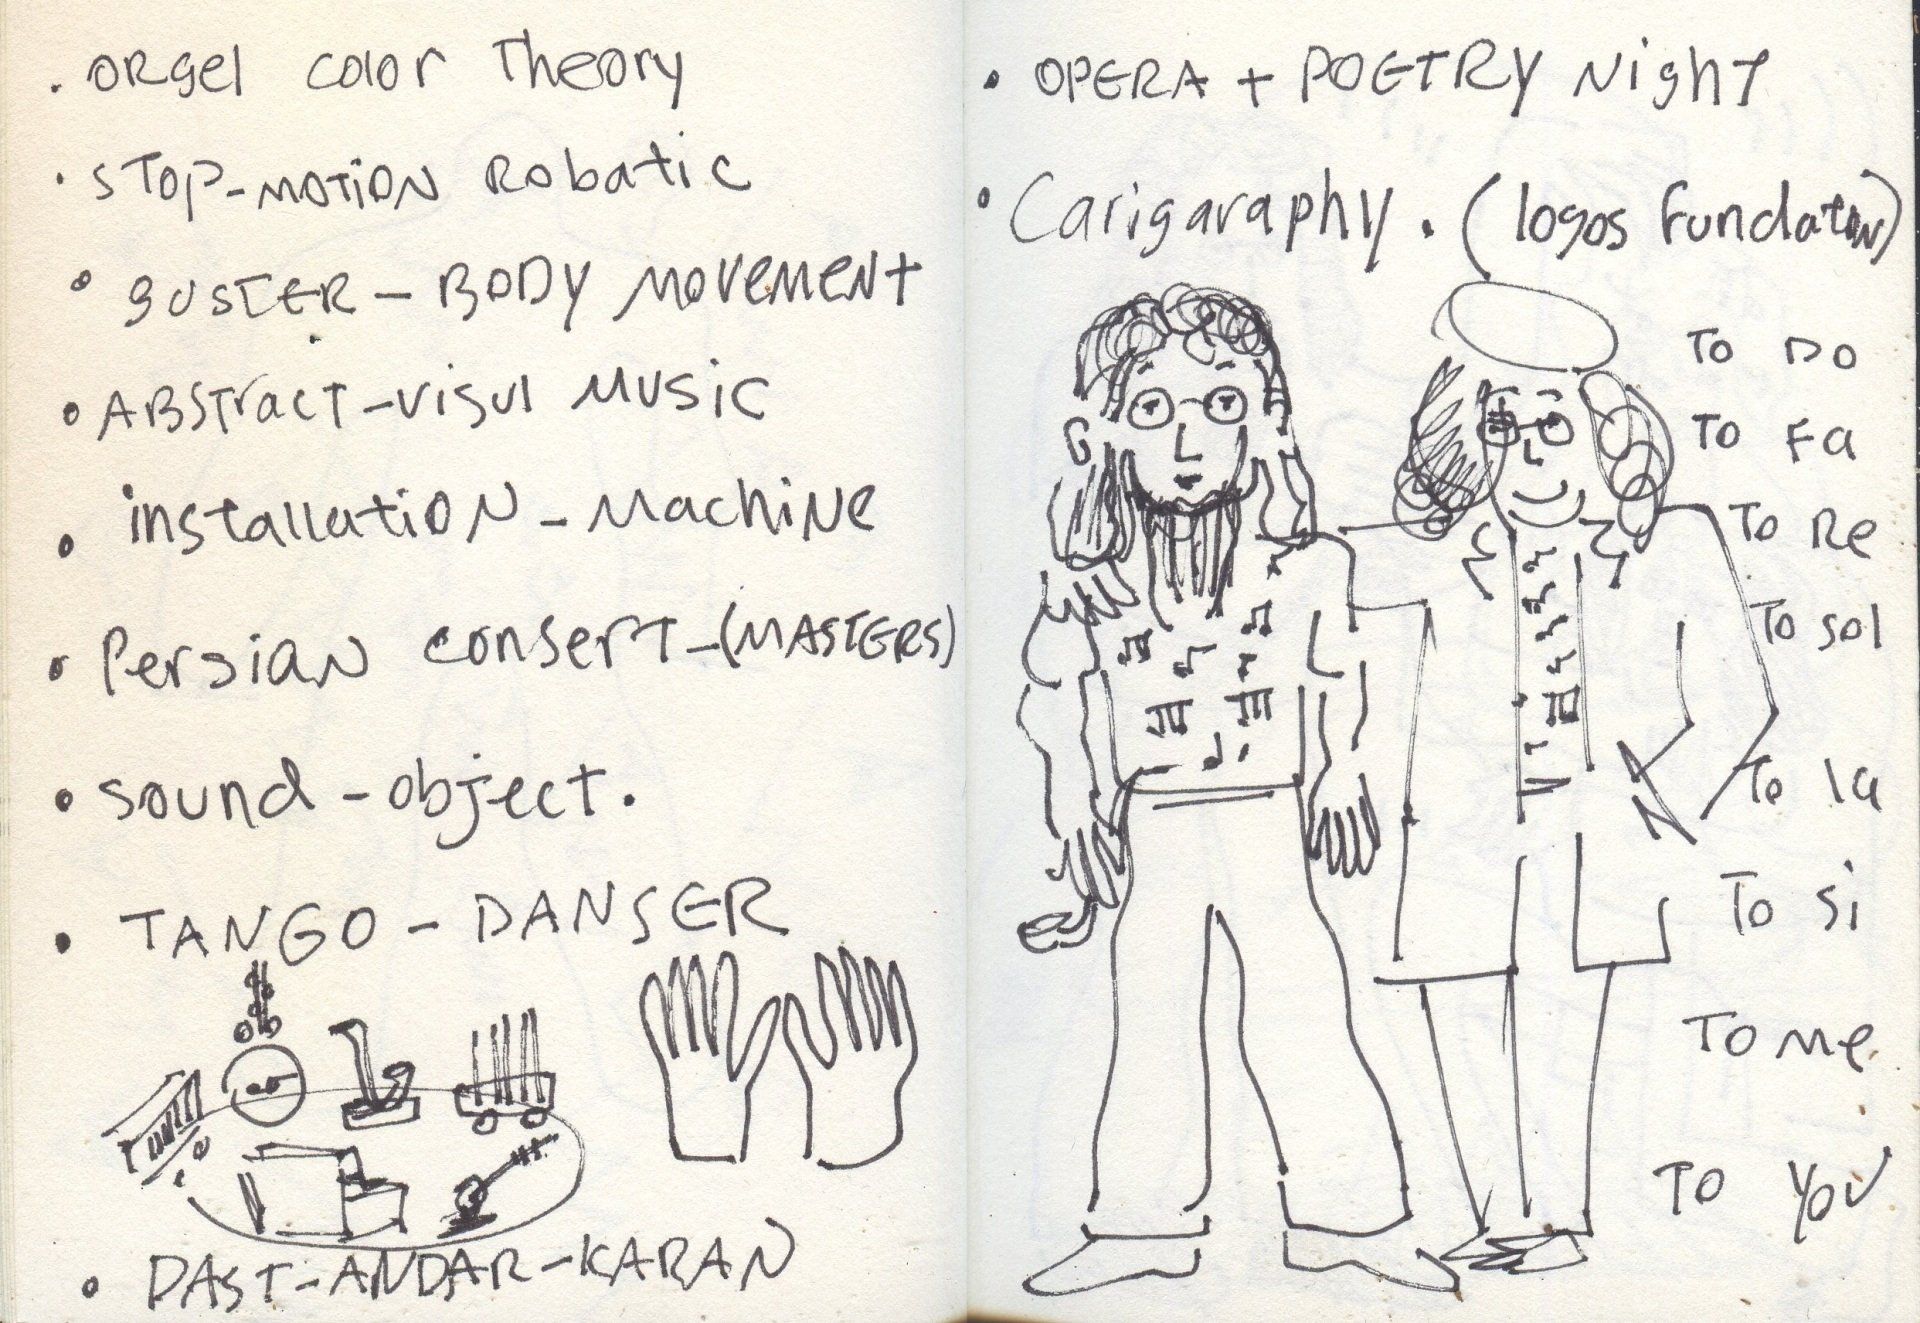 . ORgel color Theory
. STOP-MOTION Robatic
. BUSTER - BODY MOVEMENT
. ABSTract-visul MUSIC
. installatiON - MachiNe
. PersiaN consert-(MASTERS)
. sound-object.
. TANGO-DANSER
. DAST-ANDAR-KARAN
. OPERA + POETRY Night
. Carigaraphy. (logos FundatioN)
TO DO
TO Fa
To Re
To sol
To la
To Si
To Me
TO YOU